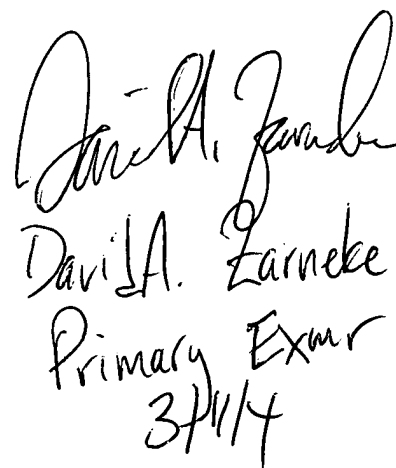 David A. Zarneke
David A. Zarneke
Primary Exmr
3/11/4